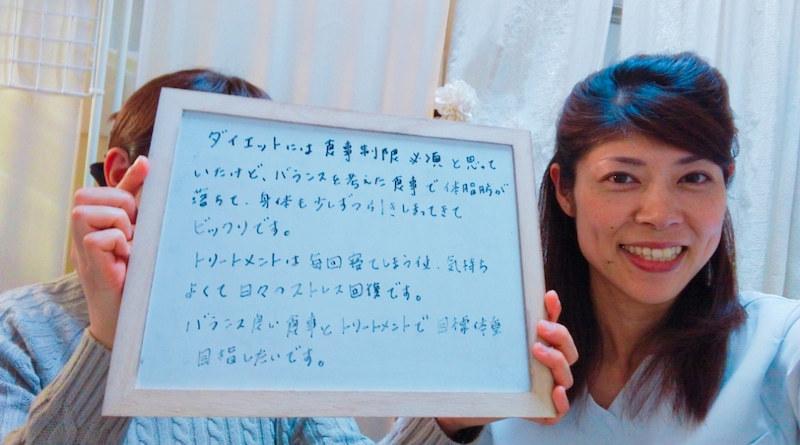 ダイエットには食事制限 必須と思って
いたけど、バランスを考えた食事で体脂肪が
落ちて、身体も少しずつ引きしまってきて
ビックリです。
トリートメントは毎回寝てしまう位、気持ち
よくて日々のストレス回復です。
バランス良い食事とトリートメントで目標体重
目指したいです。